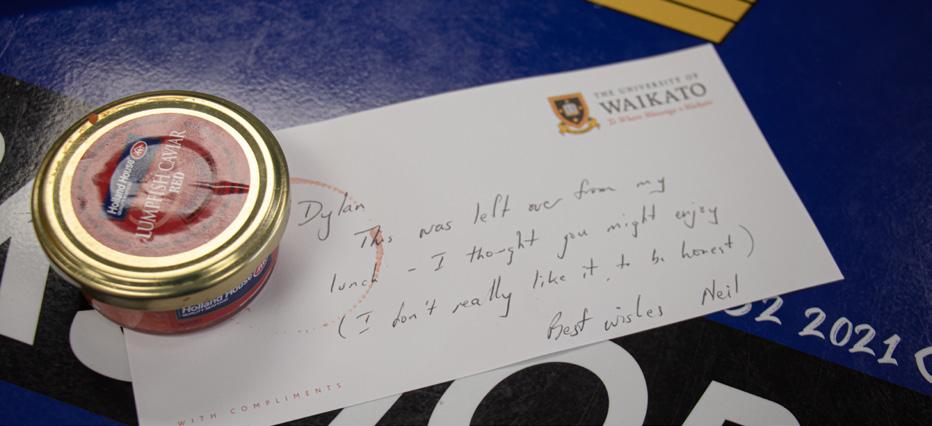 Holland House
LUMPFISH CAVIAR
RED
Holland House
THE UNIVERSITY OF
WAIKATO
Te Whare Wānanga o Waikato
Dylan
This was left over from my
lunch - I thought you might enjoy
(I don't really like it, to be honest)
Best wishes Neil
WITH COMPLIMENTS
2 2021